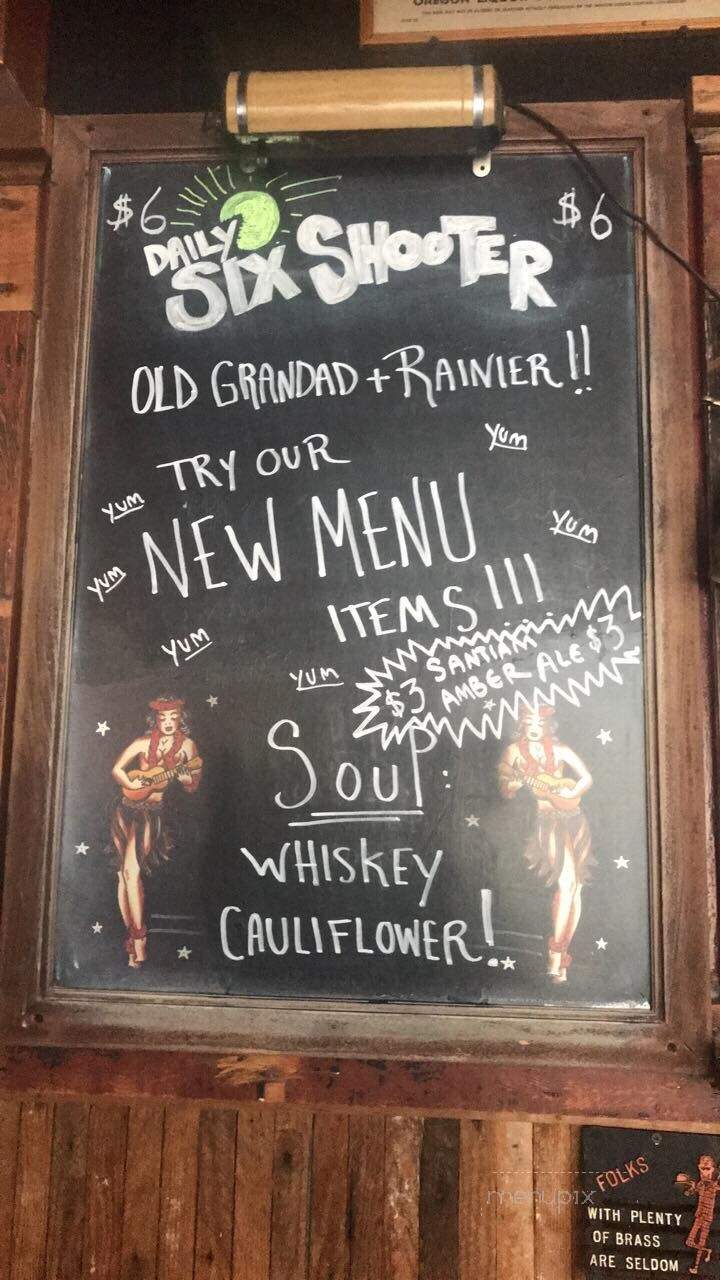 $6 $6
DAILY
SIX SHOOTER
OLD GRANDAD + RAINIER!!
TRY OUR
YUM
YUM
NEW MENU
YUM
YUM
ITEMS!!!
YUM
YUM
SANTIAM
$3 AMBER ALE $3
SOUP:
WHISKEY
CAULIFLOWER!
menupix
FOLKS
WITH PLENTY
OF BRASS
ARE SELDOM